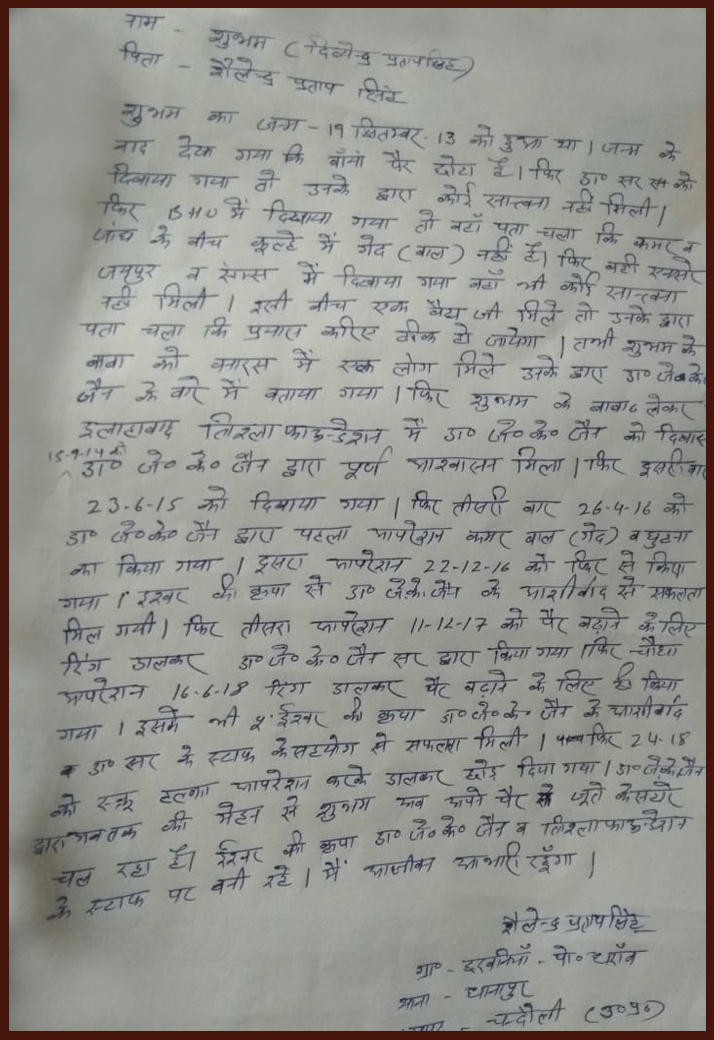 नाम - शुभम (दिव्येन्द्र प्रतापसिंह)
पिता - शैलेन्द्र प्रताप सिंह
शुभम का जन्म - 19 सितम्बर. 13 को हुआ था। जन्म के
बाद देखा गया कि बाँया पैर छोटा है। फिर डा० सर को
दिखाया गया तो उनके द्वारा कोई सान्त्वना नहीं मिली।
फिर BHU में दिखाया गया तो वहाँ पता चला कि कमर व
जांघ के बीच कूल्हे में गेद (बाल) नहीं है। फिर वही
जयपुर व में दिखाया गया वहाँ भी कोई सान्त्वना
नहीं मिली। इसी बीच एक वैद्य जी मिले तो उनके द्वारा
पता चला कि प्रयास करिए ठीक हो जायेगा। तभी शुभम के
बाबा को बनारस में एक लोग मिले उनके द्वारा डा० जे० के०
जैन के बारे में बताया गया। फिर शुभम के बाबा लेकर
इलाहाबाद त्रिशला फाउन्डेशन में डा० जे० के० जैन को दिखाया
15-9-14 को
डा० जे० के० जैन द्वारा पूर्ण आश्वासन मिला। फिर दूसरी बार
23-6-15 को दिखाया गया। फिर तीसरी बार 26-4-16 को
डा० जे० के० जैन द्वारा पहला आपरेशन कमर बाल (गेंद) व घुटना
का किया गया। दूसरा आपरेशन 22-12-16 को फिर से किया
गया। ईश्वर की कृपा से डा० जे.के. जैन के आशीर्वाद से सफलता
मिल गयी। फिर तीसरा आपरेशन 11-12-17 को पैर बढ़ाने के लिए
रिंग डालकर डा० जे० के० जैन सर द्वारा किया गया। फिर चौथा
आपरेशन 16-6-18 रिंग डालकर पैर बढ़ाने के लिए ही किया
गया। इसमें भी ईश्वर की कृपा डा० जे० के० जैन के आशीर्वाद
व डा० सर के स्टाफ के सहयोग से सफलता मिली। फिर 24-18
को स्क्रू हल्का आपरेशन करके डालकर छोड़ दिया गया। डा० जे.के. जैन
द्वारा अब तक की मेहनत से शुभम अब अपने पैर जूते के सहारे
चल रहा है। ईश्वर की कृपा डा० जे० के० जैन व त्रिशला फाउन्डेशन
के स्टाफ पर बनी रहे। मैं आजीवन आभारी रहूँगा।
शैलेन्द्र प्रताप सिंह
ग्रा० - - पो० धराँव
थाना - धानापुर
- चन्दौली (उ०प्र०)